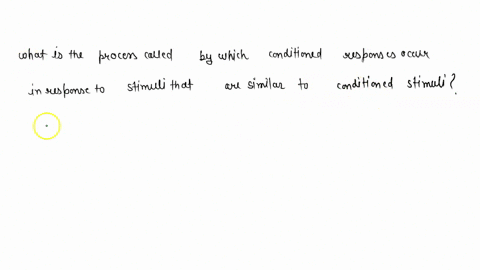 what is the process called by which conditioned responses occur
in response to stimuli that are similar to conditioned stimuli?